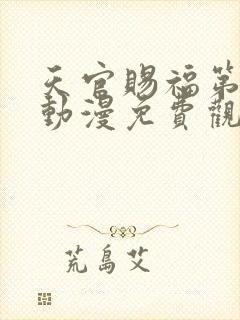 天官賜福第
動漫免費觀
荒島艾